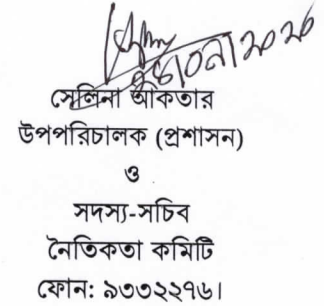 সেলিনা আকতার
উপপরিচালক (প্রশাসন)
ও
সদস্য-সচিব
নৈতিকতা কমিটি
ফোন: ৯৩৩২২৭৬।